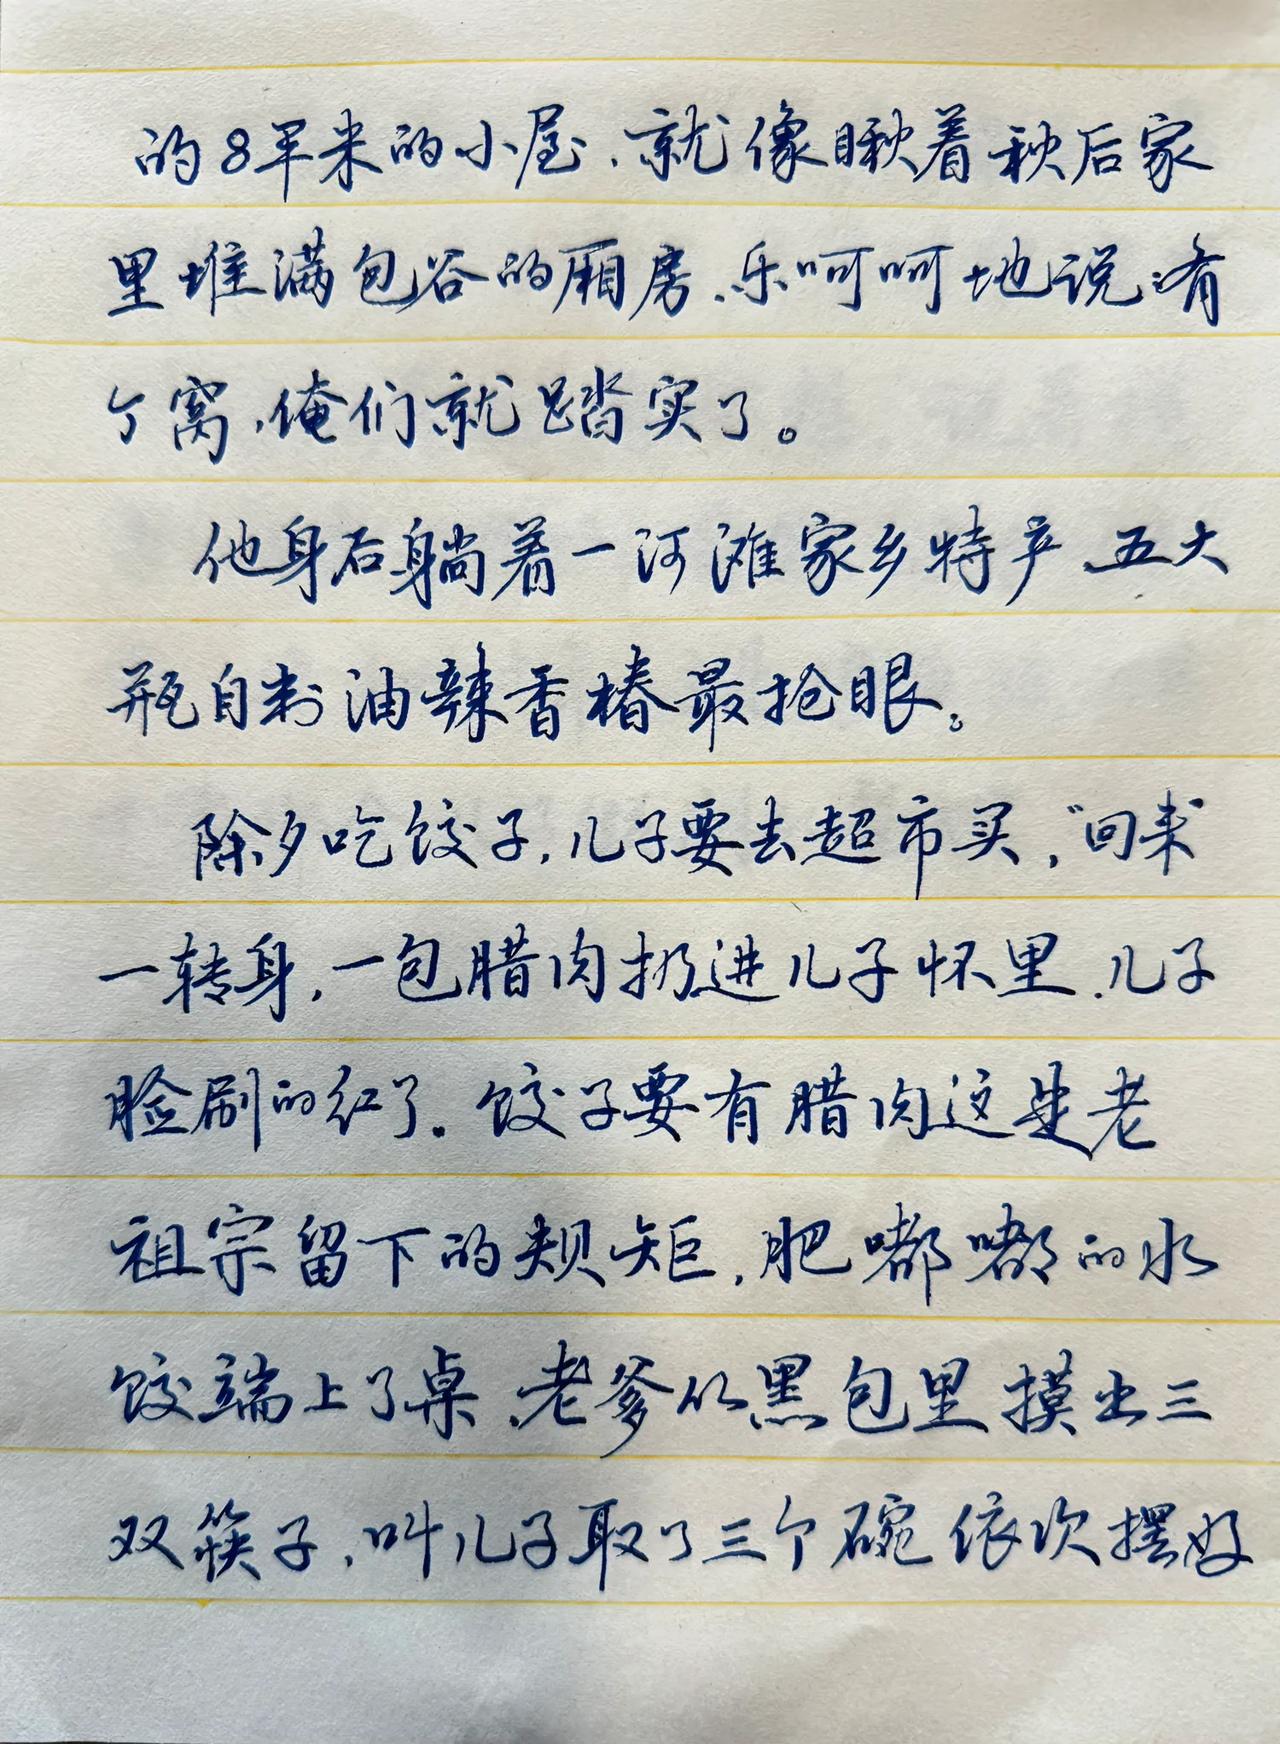 的8平米的小屋,就像瞅着秋后家
里堆满包谷的厢房,乐呵呵地说:有
个窝,俺们就踏实了。
他身后躺着一河滩家乡特产,五大
瓶自制油辣香椿最抢眼。
除夕吃饺子,儿子要去超市买,“回来”
一转身,一包腊肉扔进儿子怀里,儿子
脸刷的红了。饺子要有腊肉这是老
祖宗留下的规矩,肥嘟嘟的水
饺端上了桌,老爹从黑包里摸出三
双筷子,叫儿子取了三个碗依次摆好